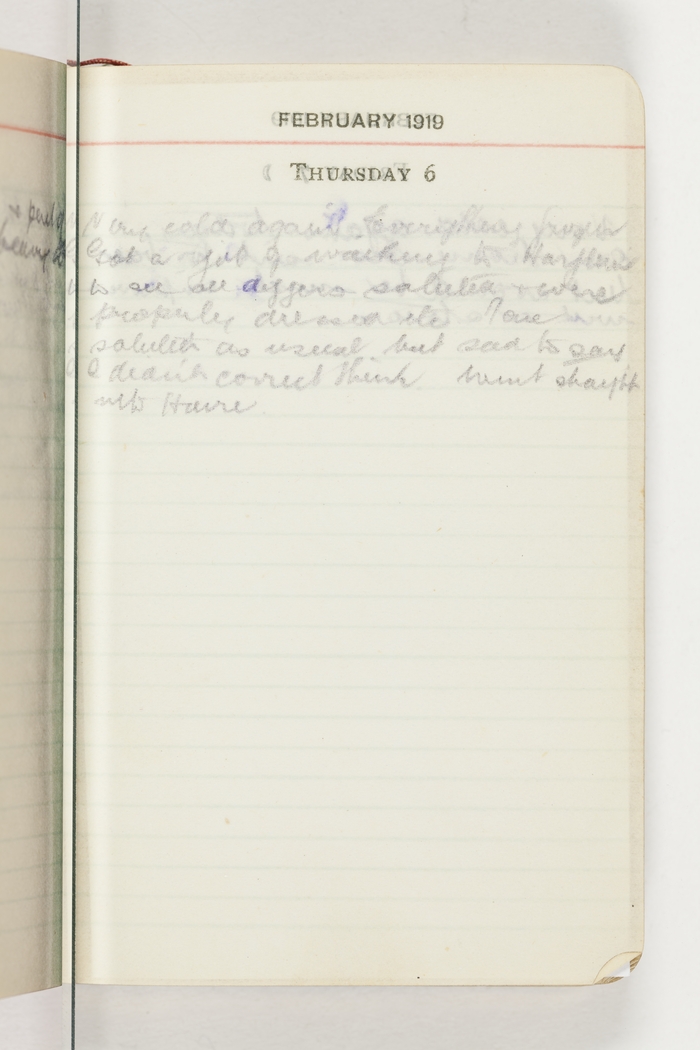 FEBRUARY 1919
THURSDAY 6
Very cold again. Everything frozen
Got a job of walking to Harfleur
to see all diggers saluted & were
properly dressed etc
saluted as usual but sad to say
I didn't correct think Went straight
into Havre.